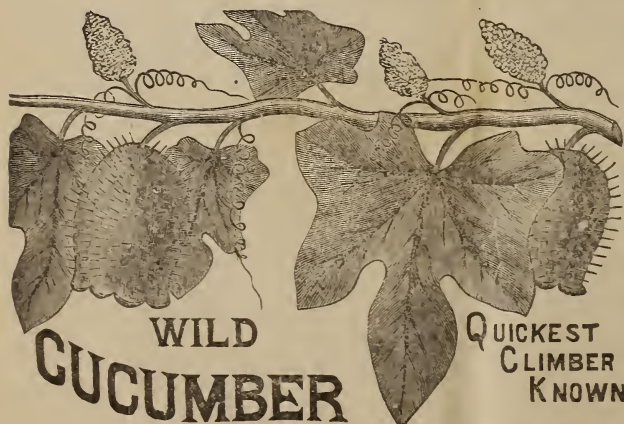 WILD
CUCUMBER
QUICKEST
CLIMBER
KNOWN